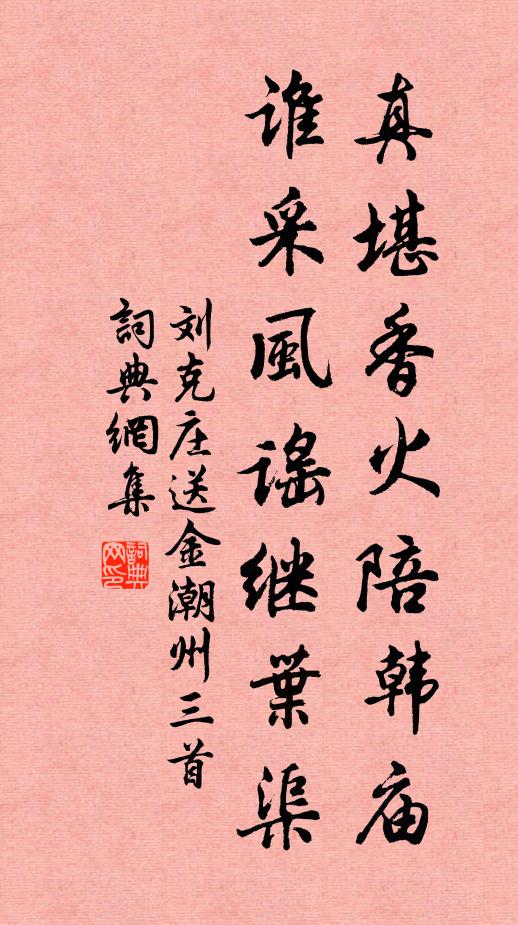 真堪香火陪韩庙
谁采風谣继葉渠
刘克庄送金潮州三首
詞典網集
詞典网印